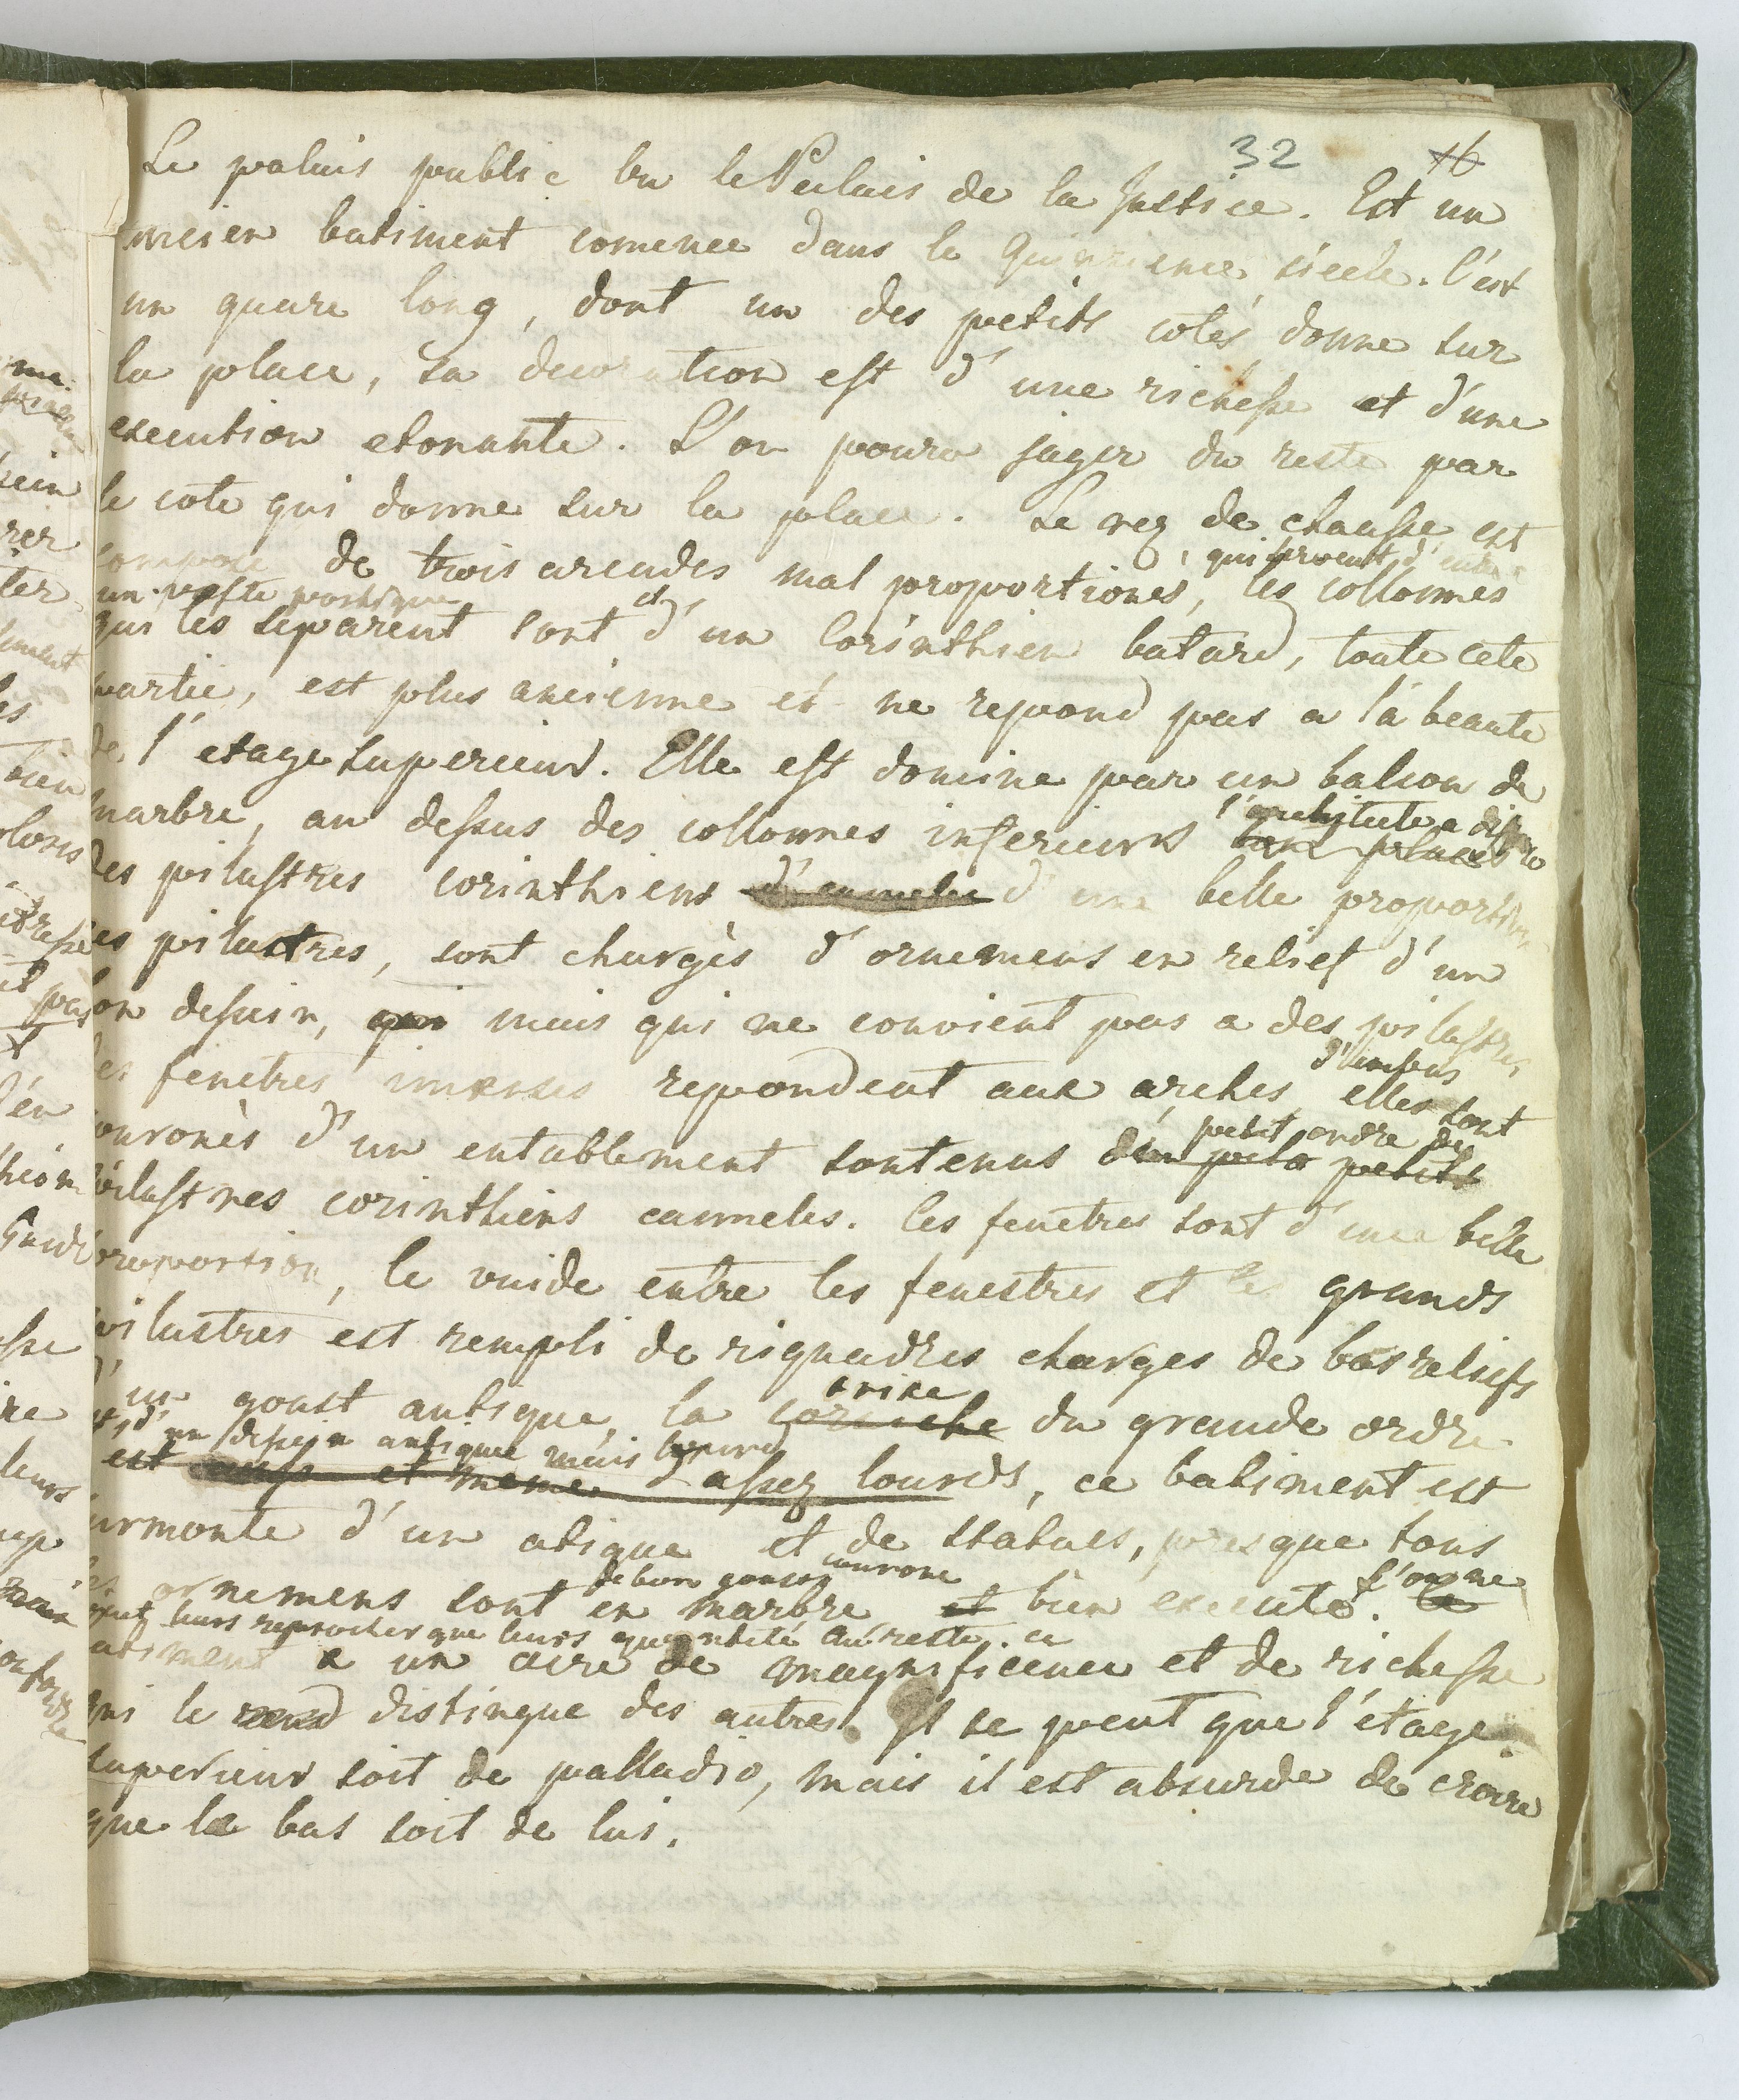 32 16
Le palais public ou le Palais de la Justice. Est un
ancien batiment comence dans le Quinzieme siecle. C'est
un quare long, dont un des petits cotés donne sur
la place, sa decoration est d'une richesse et d'une
execution etonante. L'on poura juger du reste par
le cote qui donne sur la place. Le rez de chausse est
qui servent d'
compose de trois arcades mal proportionés, les collonnes
un vaste portique et
qui les separent sont d'un Corinthien batard, toute cete
partie, est plus ancienne et ne repond pas a la beaute
de l'etage superieur. Elle est domine par un balcon de
l'architecte a
marbre, au dessus des collonnes inferieurs
des pilastres corinthiens d'une belle proportion
ces pilastres, sont chargès d'ornemens en relief d'un
bon dessein, qui mais qui ne convient pas a des pilastres,
d'
les fenetres repondent aux arches elles sont
petit ordre de
couronès d'un entablement soutenus d'un petits
pilastres corinthiens canneles. Ces fenetres sont d'une belle
proportion, le vuide entre les fenestres et les grands
pilastres est rempli de riquadres charges de bas reliefs
frise
d'un goust antique, la corniche du grande ordre
et d'un dessein antique mais
est meme assez lourds, ce batiment est
surmonte d'un atique et de statues, presque tous
de bon goust l'on ne
les ornemens sont en marbre et bien executé. Ce
peut leurs reprocher que leurs quantité au reste. ce
batiment a un aire de magnificence et de richesse
qui le rend distingue des autres. Il se peut que l'étage
superieur soit de palladio, mais il est absurde de croire
que le bas soit de lui.